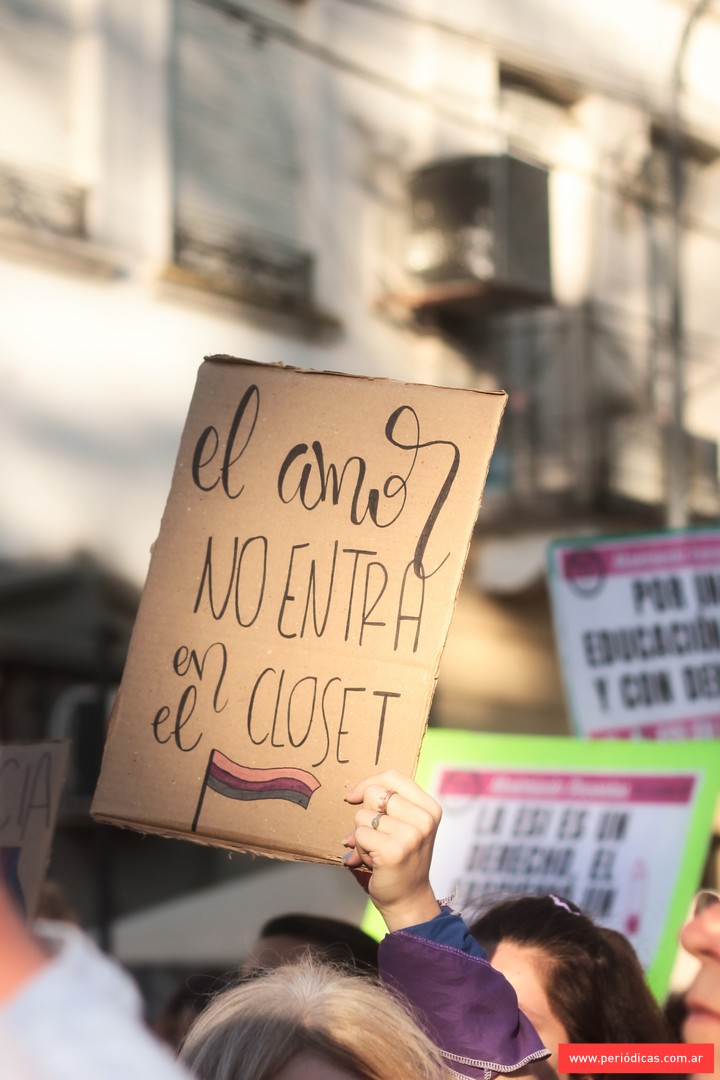 el amor
NO ENTRA
en
el CLOSET
POR UN
EDUCACIÓN
Y CON
LA ESI ES UN
DERECHO, EL
CIA
www.periódicas.com.ar